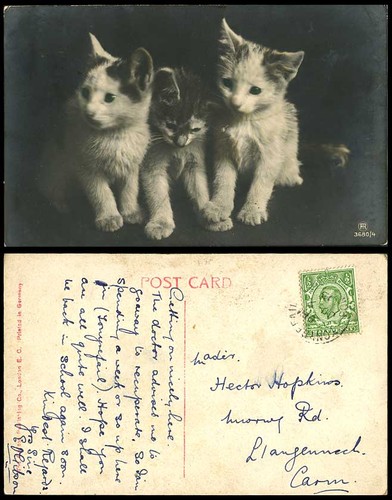 3680/4
POST CARD
Getting on nicely here.
The doctor advised me to
go away to recuperate. So I'm
spending a week or so up here
in (Tongrefail) Hope you
are all quite well. I shall
be back in School again soon.
Kindest Regards
Yrs Sinc.
Hector Hopkins.
Rd.
Llangennech.
Carm.
Printed in Germany
London E. C.